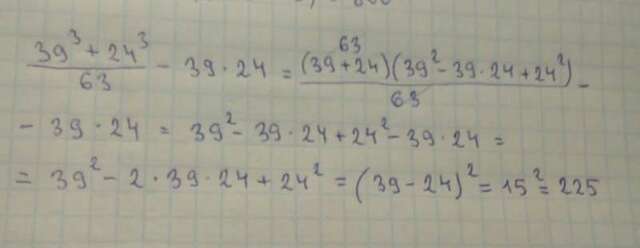 63
(39³ + 24³)/63 - 39 · 24 = (39 + 24)(39² - 39 · 24 + 24²)/63 -
- 39 · 24 = 39² - 39 · 24 + 24² - 39 · 24 =
= 39² - 2 · 39 · 24 + 24² = (39 - 24)² = 15² = 225